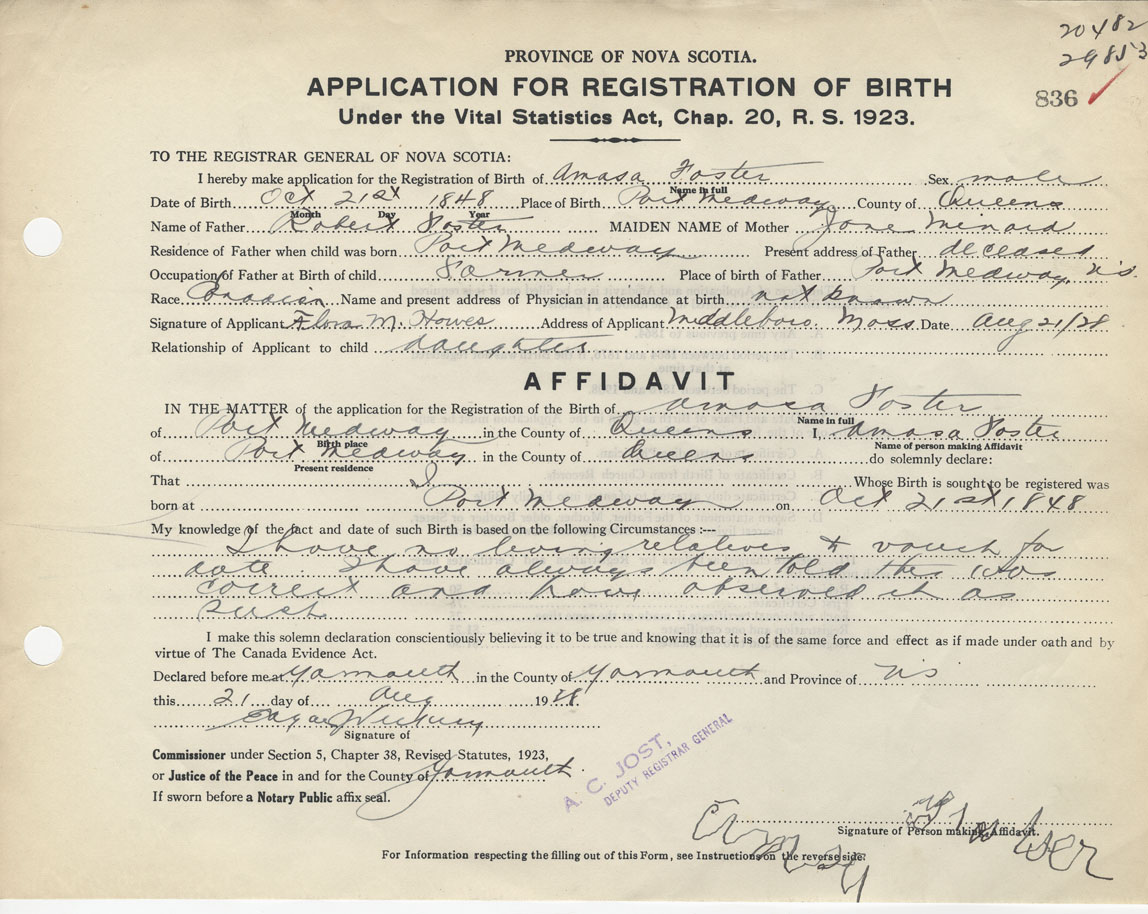 20482
29853
836
PROVINCE OF NOVA SCOTIA.
APPLICATION FOR REGISTRATION OF BIRTH
Under the Vital Statistics Act, Chap. 20, R. S. 1923.
TO THE REGISTRAR GENERAL OF NOVA SCOTIA:
I hereby make application for the Registration of Birth of Amasa Foster Sex male
Name in full
Date of Birth Oct 21st 1848 Place of Birth Port Medway County of Queens
Month Day Year
Name of Father Robert Foster MAIDEN NAME of Mother Jane Minard
Residence of Father when child was born Port Medway Present address of Father deceased
Occupation of Father at Birth of child Farmer Place of birth of Father Port Medway, N.S.
Race Canadian Name and present address of Physician in attendance at birth not known
Signature of Applicant Flora M. Howes Address of Applicant Middleboro Mass Date Aug 21/28
Relationship of Applicant to child daughter
AFFIDAVIT
IN THE MATTER of the application for the Registration of the Birth of Amasa Foster
Name in full
of Port Medway in the County of Queens I, Amasa Foster
Birth place Name of person making Affidavit
of Port Medway in the County of Queens do solemnly declare:
Present residence
That I Whose Birth is sought to be registered was
born at Port Medway on Oct 21st 1848
My knowledge of the fact and date of such Birth is based on the following Circumstances :--
I have no living relatives to vouch for
date I have always been told this was
correct and have observed it as
such
I make this solemn declaration conscientiously believing it to be true and knowing that it is of the same force and effect as if made under oath and by
virtue of The Canada Evidence Act.
Declared before me at Yarmouth in the County of Yarmouth and Province of NS
this 21 day of Aug 1928.
Edgar
Signature of
Commissioner under Section 5, Chapter 38, Revised Statutes, 1923,
or Justice of the Peace in and for the County of Yarmouth
If sworn before a Notary Public affix seal.
A. C. JOST,
DEPUTY REGISTRAR GENERAL
Signature of Person making Affidavit.
For Information respecting the filling out of this Form, see Instructions on the reverse side.